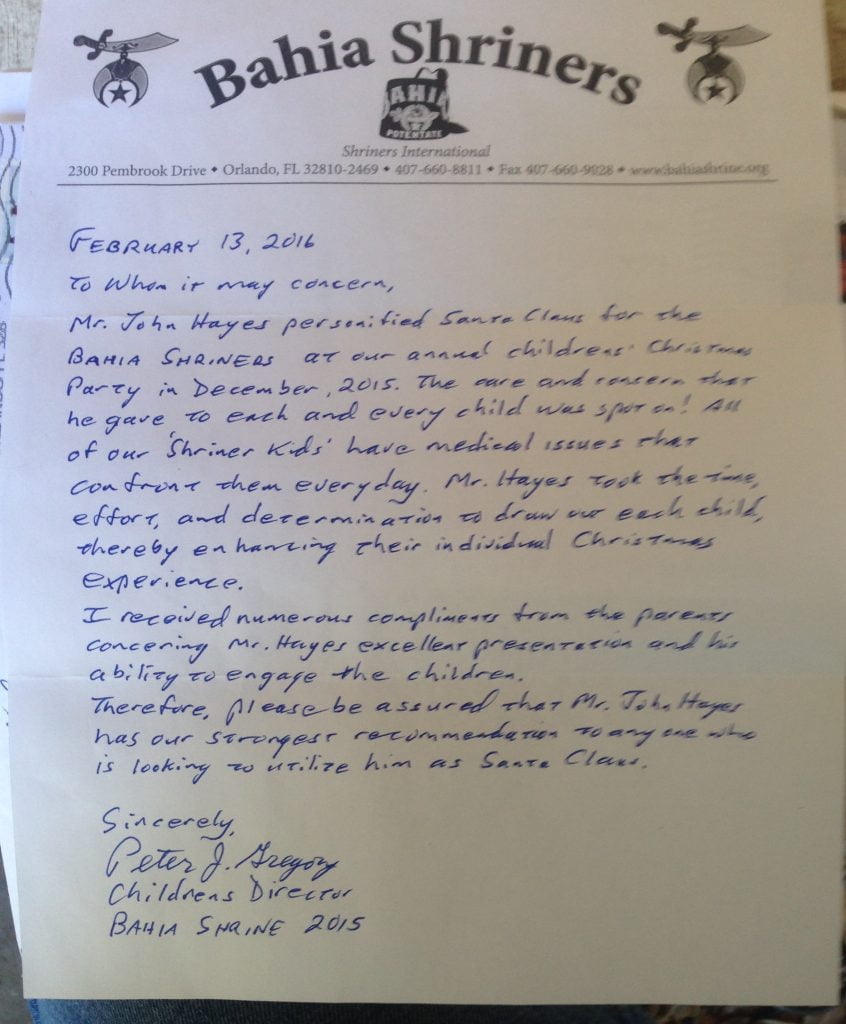 Bahia Shriners
BAHIA
POTENTATE
Shriners International
2300 Pembrook Drive • Orlando, FL 32810-2469 • 407-660-8811 • Fax 407-660-9928 • www.bahiashrine.org
FEBRUARY 13, 2016
To Whom it may concern,
Mr. John Hayes personified Santa Claus for the
BAHIA SHRINERS at our annual childrens' Christmas
Party in December, 2015. The care and concern that
he gave to each and every child was spot on! All
of our 'Shriner Kids' have medical issues that
confront them everyday. Mr. Hayes took the time,
effort, and determination to draw out each child,
thereby enhancing their individual Christmas
experience.
I received numerous compliments from the parents
concering Mr. Hayes excellent presentation and his
ability to engage the children.
Therefore, please be assured that Mr. John Hayes
has our strongest recommendation to anyone who
is looking to utilize him as Santa Claus.
Sincerely,
Peter J. Gregory
Childrens Director
BAHIA SHRINE 2015